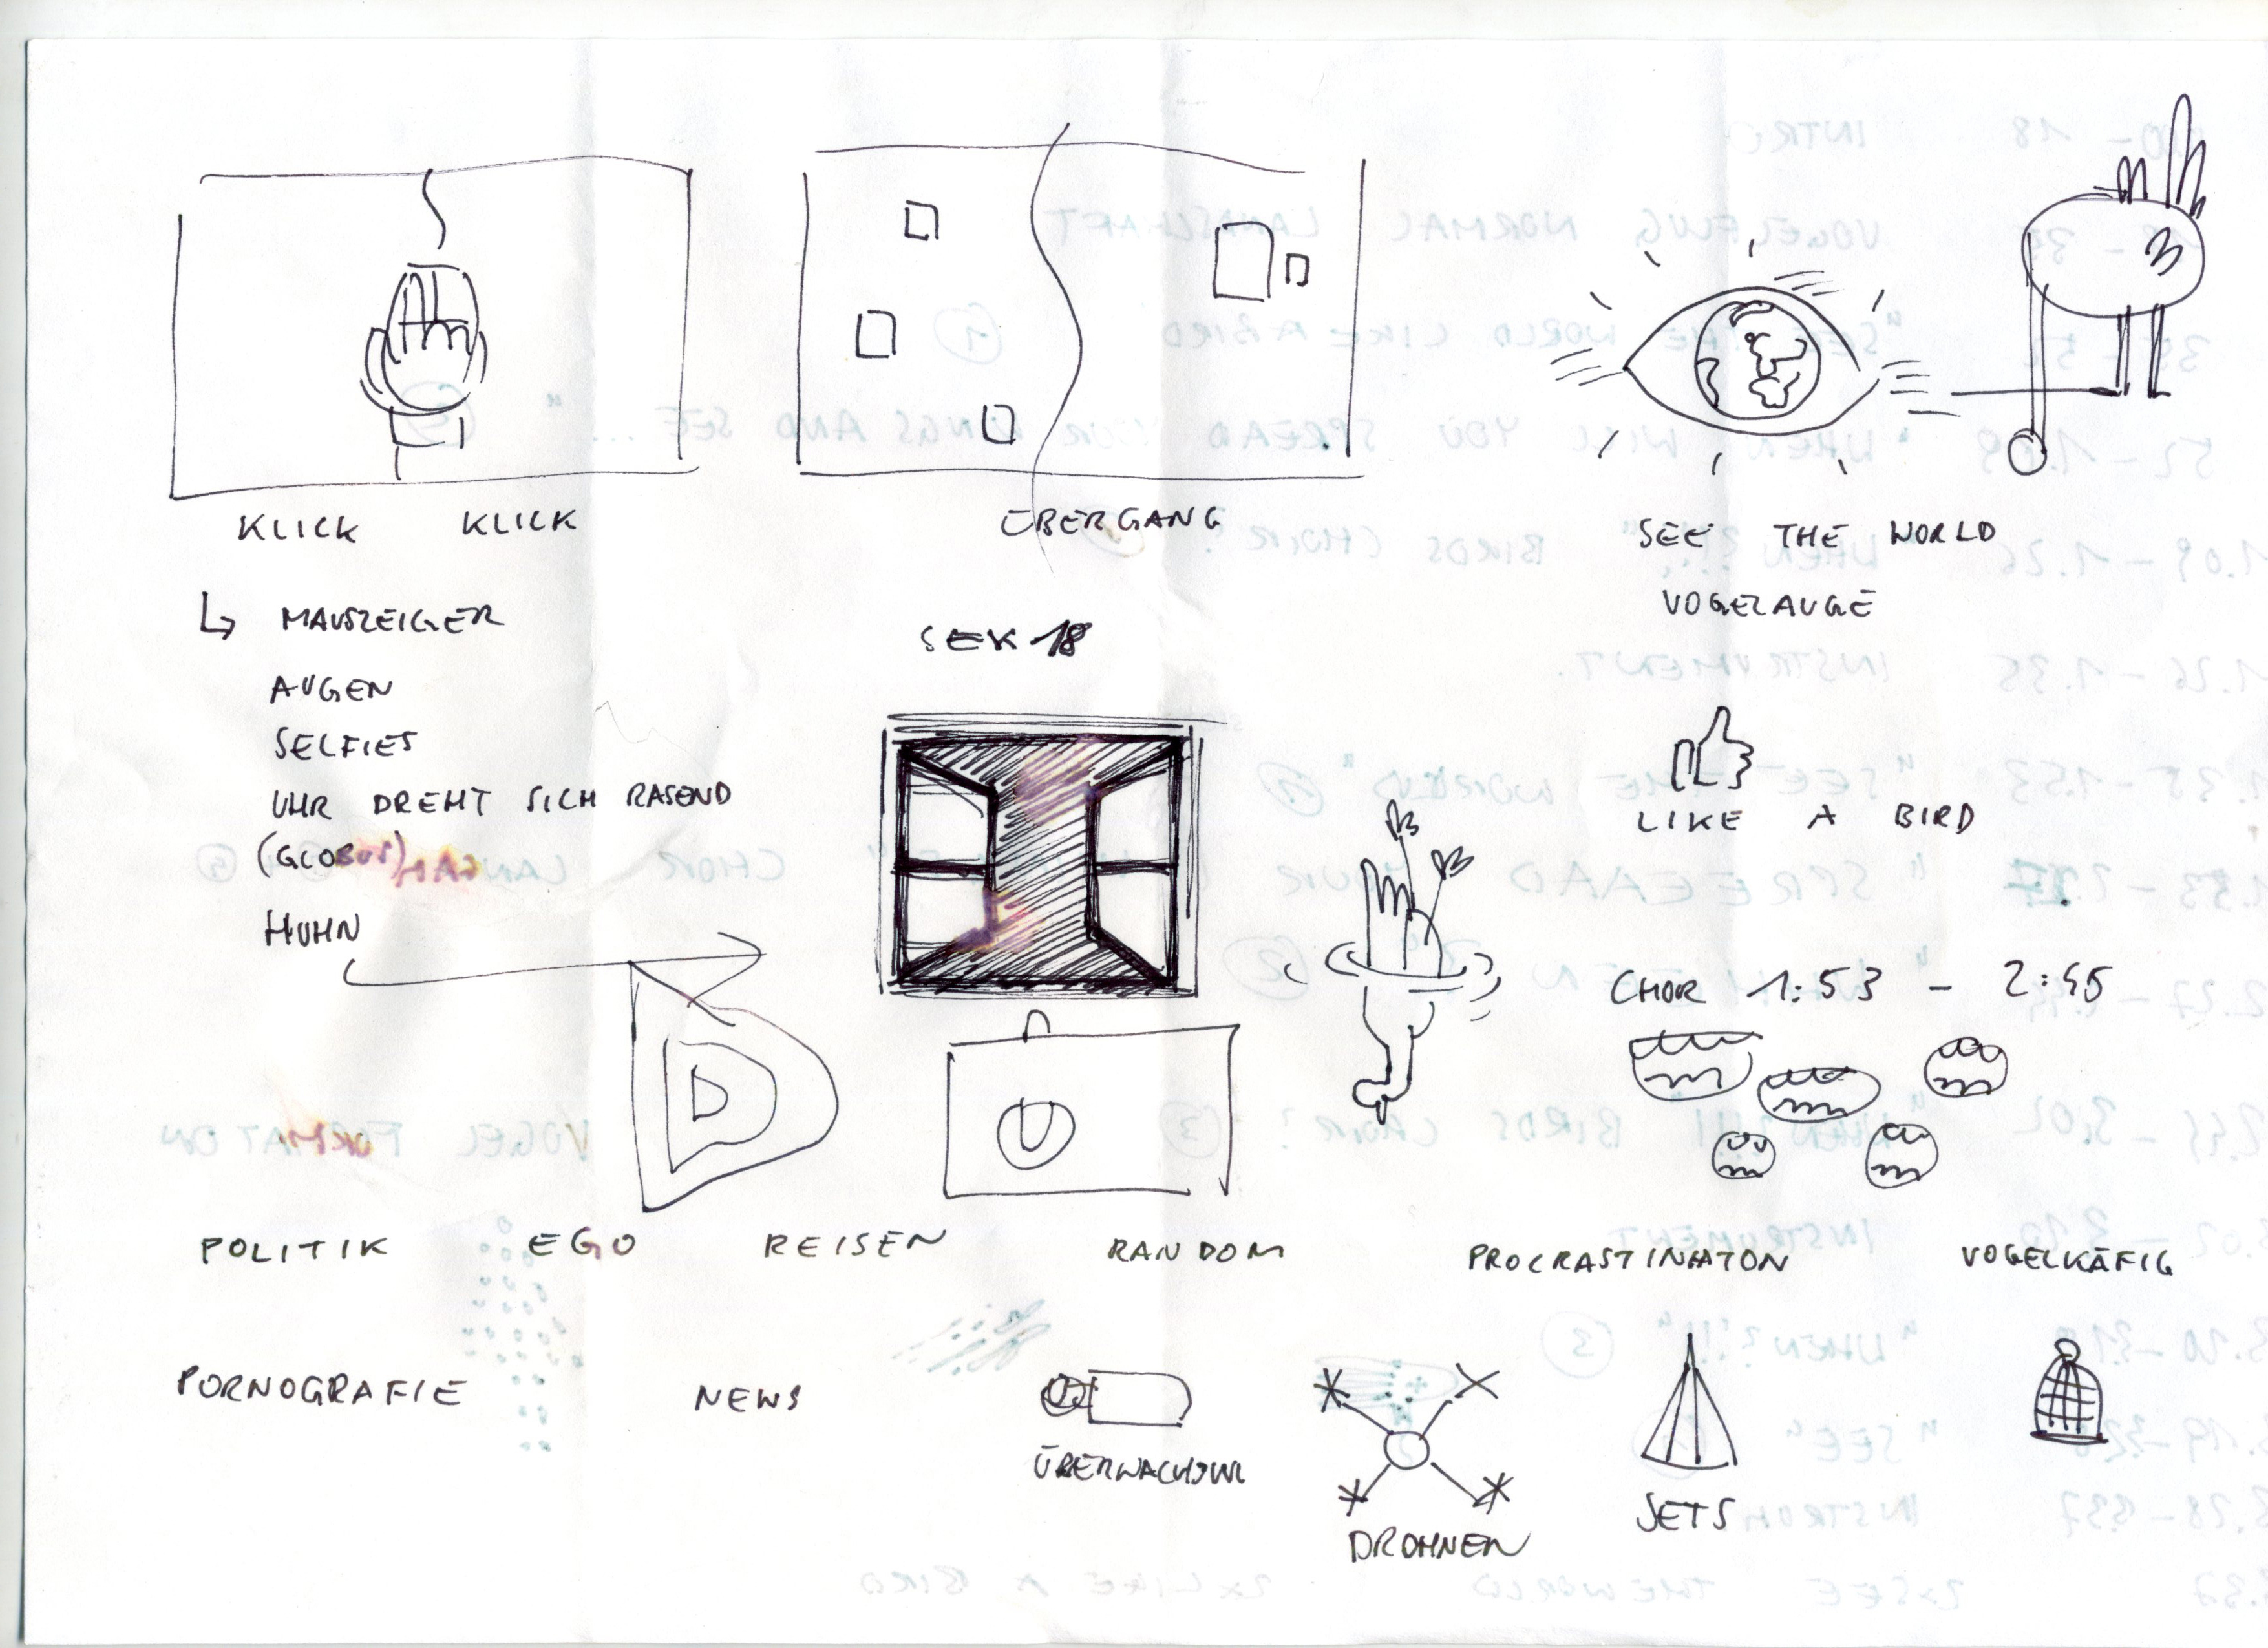 KLICK KLICK
ÜBERGANG
SEE THE WORLD
VOGELAUGE
↳ MAUSZEIGER
SEK 18
AUGEN
SELFIES
UHR DREHT SICH RASEND
LIKE A BIRD
(GLOBUS)
HUHN
CHOR 1:53 - 2:45
POLITIK EGO REISEN RANDOM PROCRASTINATON VOGELKÄFIG
PORNOGRAFIE NEWS
ÜBERWACHUNG
JETS
DROHNEN